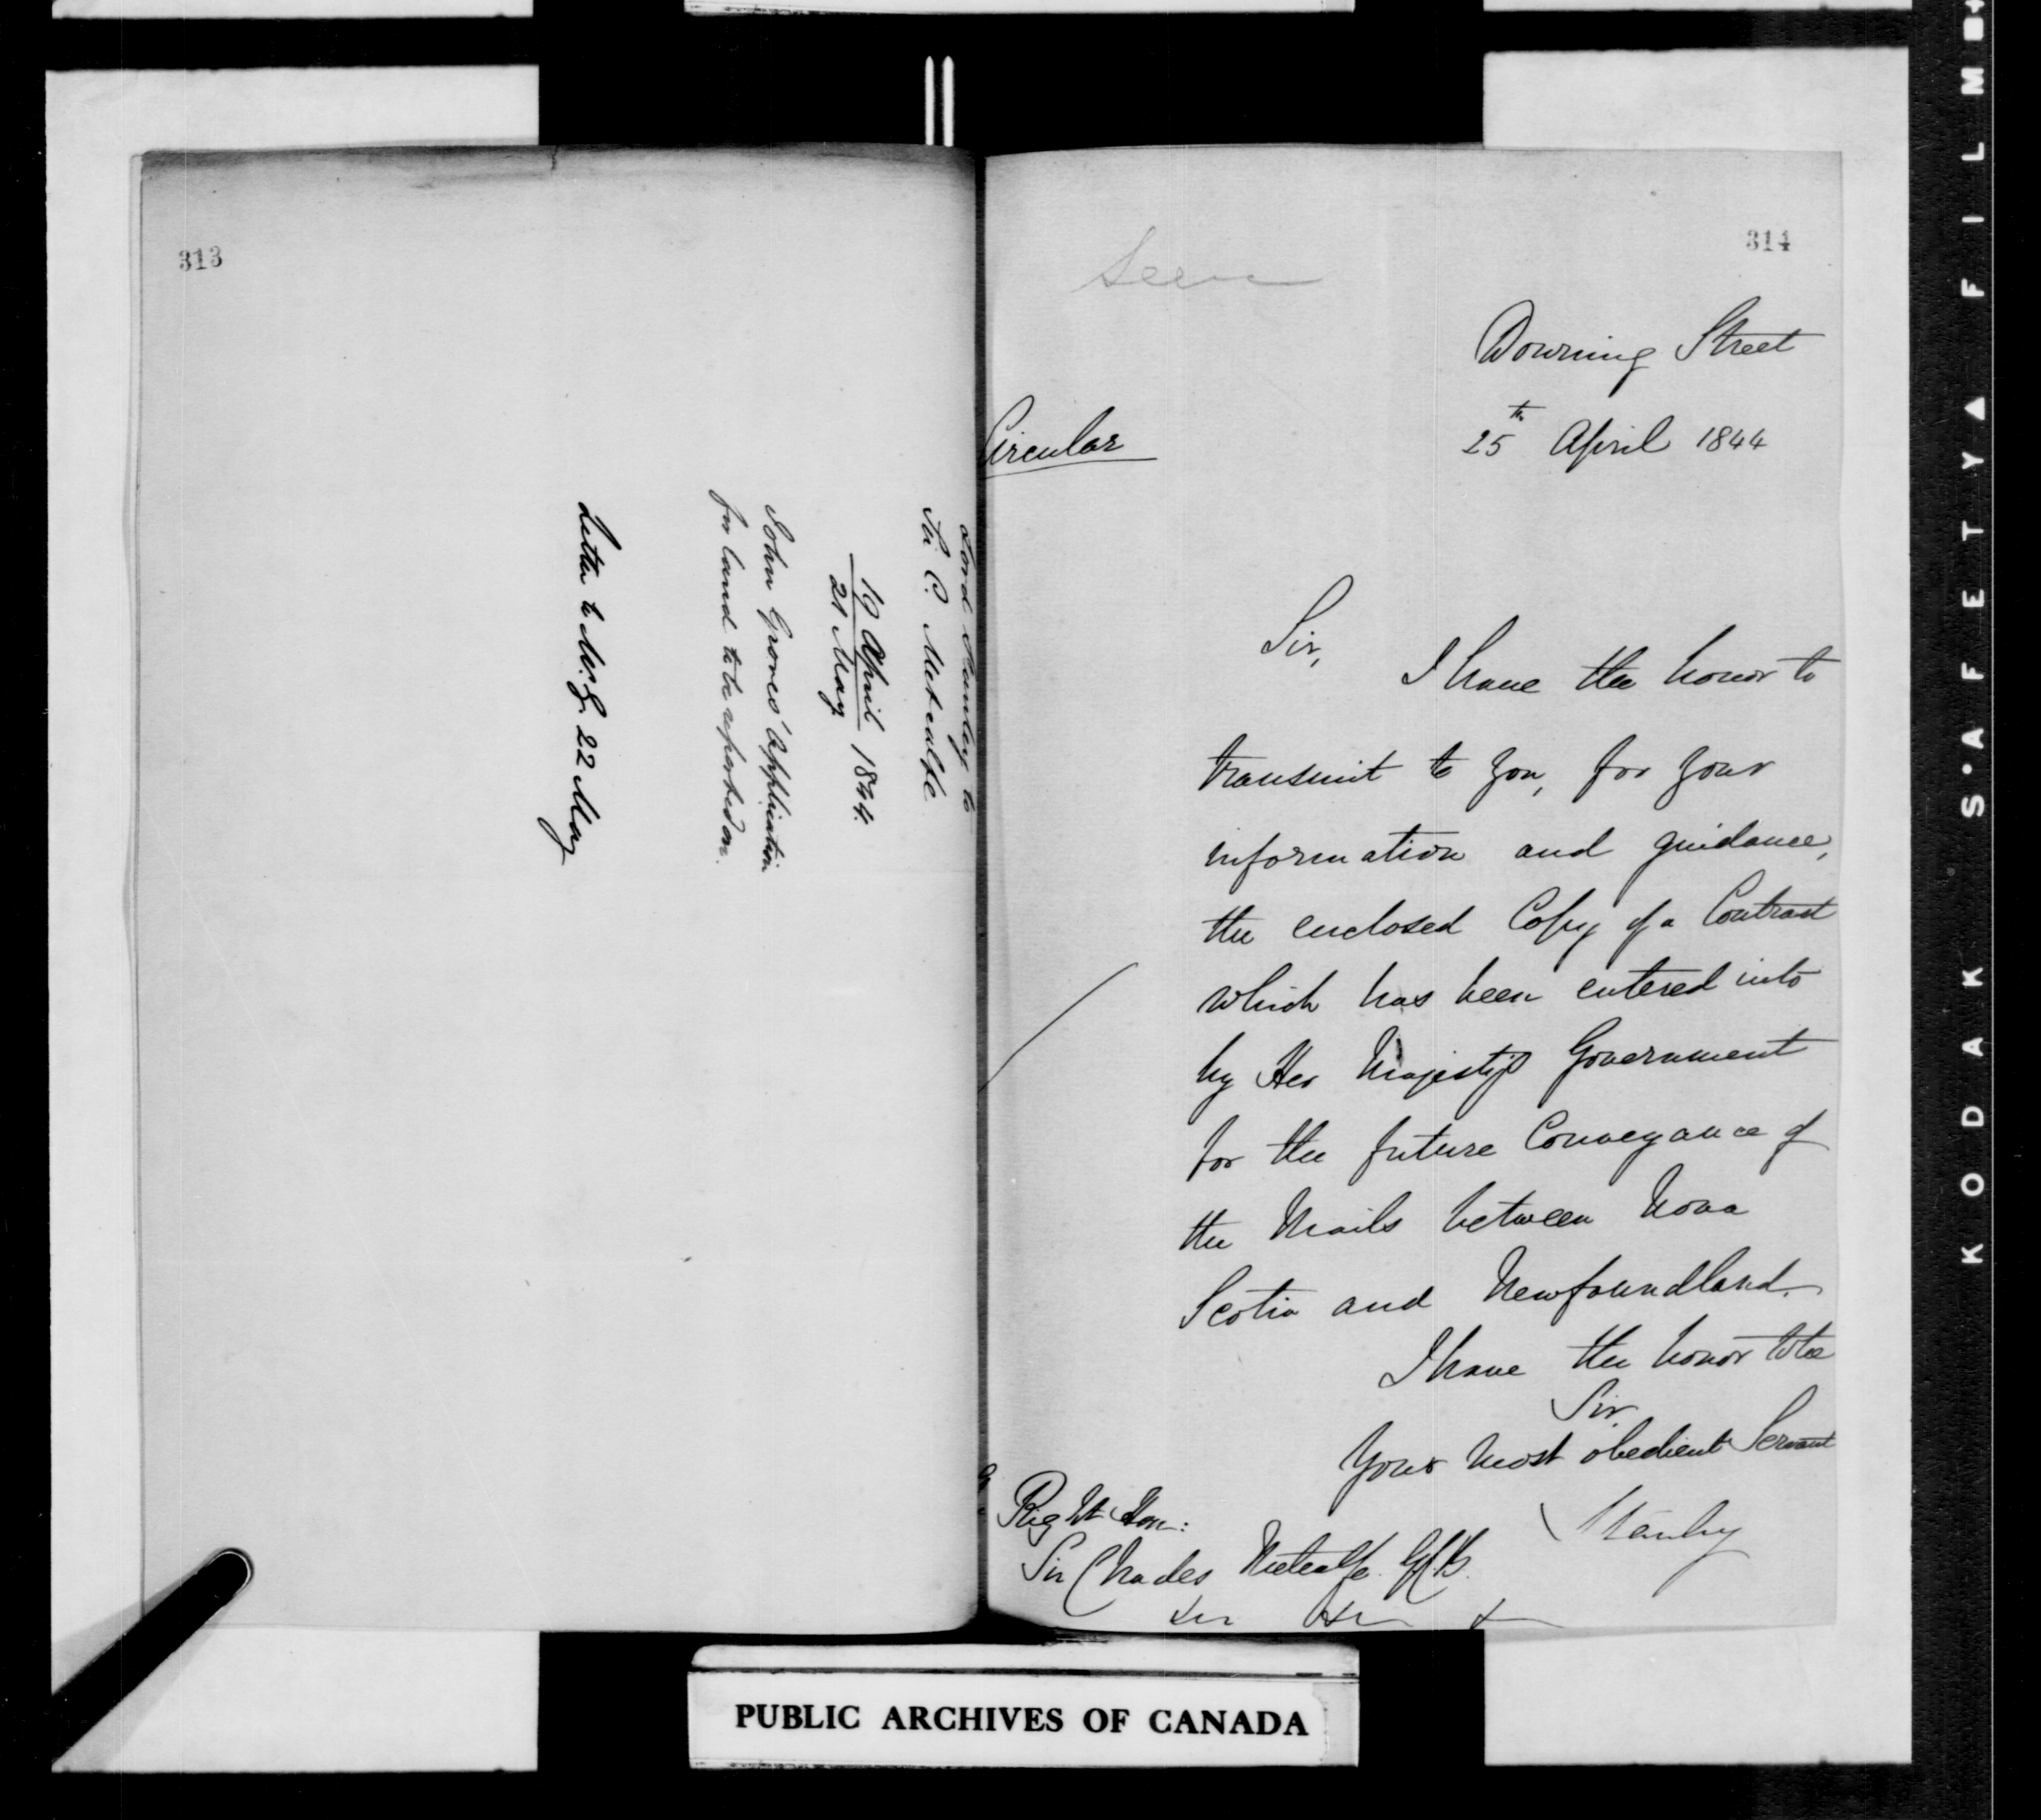 313
Lord Stanley to
Sir C. Metcalfe
19 April 1844.
21 May
John Groves' application
for land to be reported on.
Letter to Mr. G. 22 May
314
Seen
Downing Street
25th April 1844
Circular
Sir,
I have the honor to
transmit to you, for your
information and guidance,
the enclosed Copy of a Contract
which has been entered into
by Her Majesty's Government
for the future Conveyance of
the Mails between Nova
Scotia and Newfoundland.
I have the honor to be
Sir,
Your most obedient Servant
Stanley
Right Hon:
Sir Charles Metcalfe. G.C.B.
PUBLIC ARCHIVES OF CANADA
KODAK S•AFETY▲ FILM